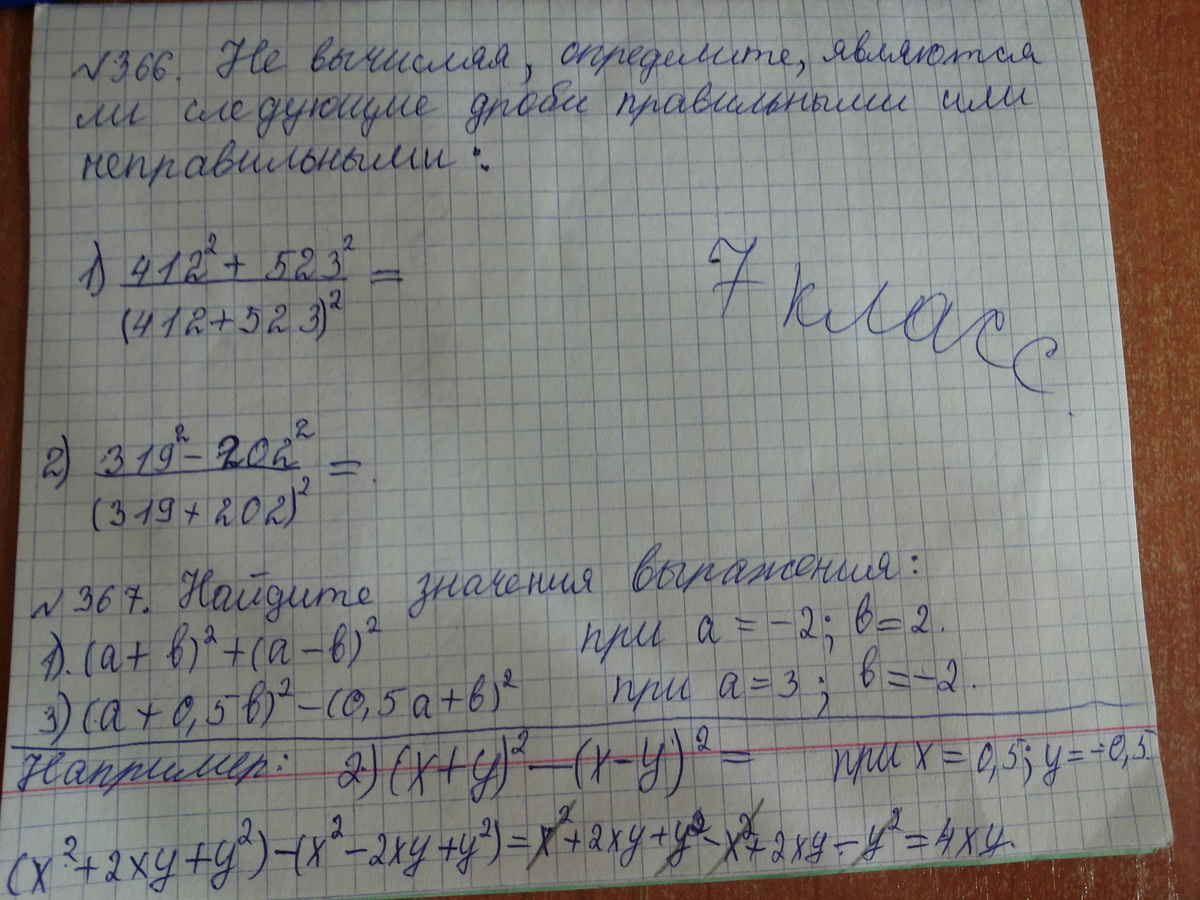 №366. Не вычисляя, определите, являются
ли следующие дроби правильными или
неправильными:
1) 412² + 523² =
(412+523)²
7 класс
2) 319² - 202² =
(319+202)²
№367. Найдите значения выражения:
1). (а + в)² + (а - в)² при а = -2; в = 2.
3) (а + 0,5в)² - (0,5а + в)² при а = 3; в = -2.
Например: 2) (х+у)² - (х-у)² = при х = 0,5; у = -0,5.
(х² + 2ху + у²) - (х² - 2ху + у²) = х² + 2ху + у² - х² + 2ху - у² = 4ху.